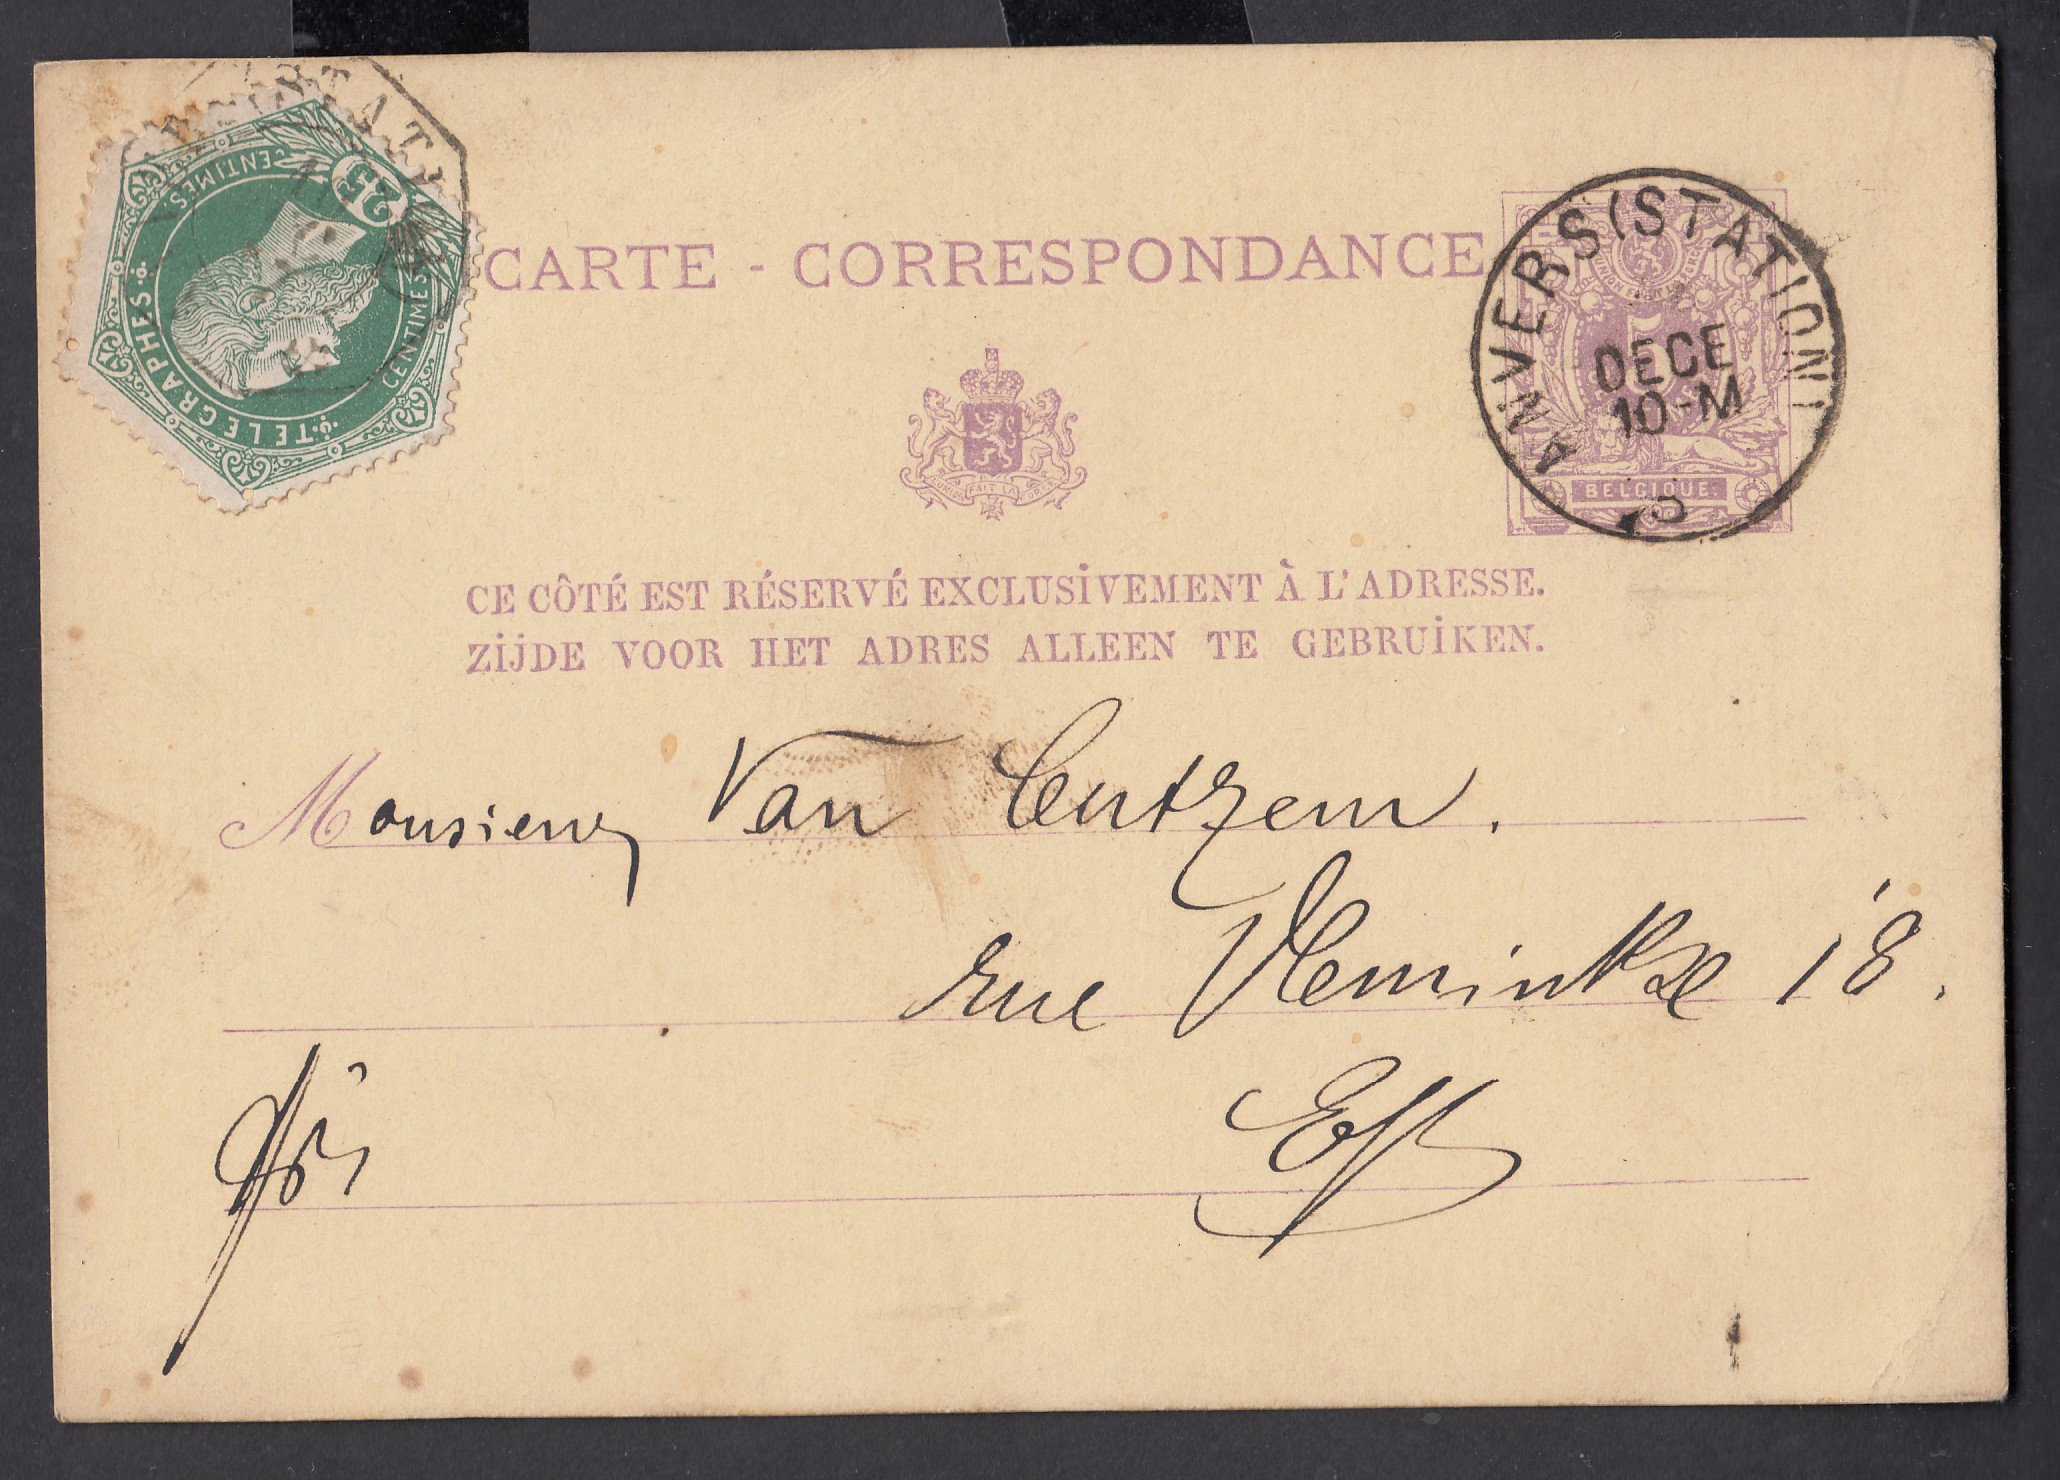 25
CENTIMES.
CENTIMES.
TELEGRAPHES
CARTE - CORRESPONDANCE
ANVERS (STATION)
DECE
10-M
5
UNION FAIT LA FORCE
BELGIQUE
CE CÔTÉ EST RÉSERVÉ EXCLUSIVEMENT À L'ADRESSE.
ZIJDE VOOR HET ADRES ALLEEN TE GEBRUIKEN.
Monsieur Van Cutzem.
rue Vleminkx 18.